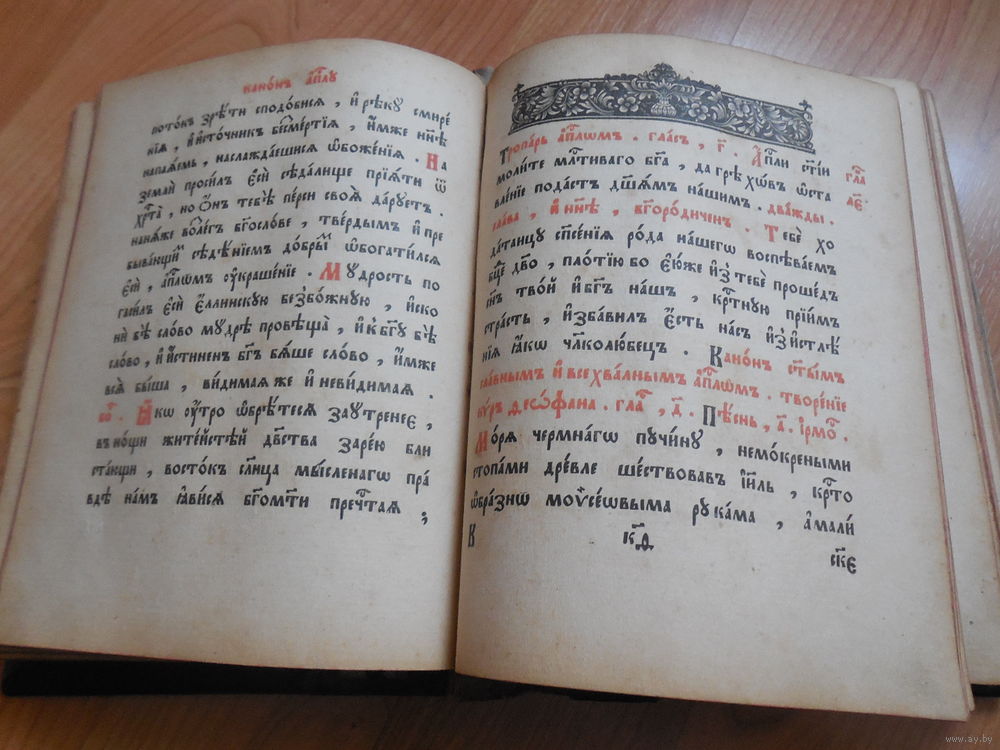 канѡ́нъ а҆пⷭ҇лу
пото́къ зрѣ́ти сподо́бисѧ , и҆ рѣ́ку смире́
нїѧ , и҆ и҆сто́чник бесме́ртїѧ , и҆́мже ны́нѣ
напаѧ́емь , наслажда́ешисѧ ѡ҆боже́нїѧ . На
земли́ проси́лъ є҆сѝ сѣда́лище прїѧ́ти ѿ
хрⷭ҇та̀ , но ѻ҆́нъ тебѣ̀ пе́рси своѧ̀ да́руетъ .
на нѧ́же возле́гъ бг҃осло́ве , тве́рдымъ и҆ пре
быва́ющим сѣде́нїемъ до́брѣ ѡ҆богати́лсѧ
є҆сѝ , а҆пⷭ҇лѡмъ ᲂу҆краше́нїе . Мꙋ́дрость по
гаси́лъ є҆сѝ є҆́ллинскую безбо́жную , и҆скони
нѝ бѣ̀ сло́во мꙋ́дрѣ провѣща̀ , и҆ к бг҃ꙋ бѣ̀
сло́во , и҆ и҆́стиненъ бг҃ъ бѧ́ше сло́во , и҆́мже
всѧ̑ бы́ша , ви́димаѧ же и҆ неви́димаѧ .
бо҃ . Ꙗ҆́кѡ ᲂу҆́тро ѡ҆брѣ́тесѧ зау́тренее ,
въ нощѝ жите́йстѣй дв҃ства заре́ю бли
ста́ющи , восто́къ сл҃нца мы́сленагѡ пра́
вдѣ на́мъ ꙗ҆ви́сѧ бг҃ома́ти пречⷭ҇таѧ ;
Тропа́рь а҆пⷭ҇лѡмъ . гла́съ , г҃ . А҆пⷭ҇ли ст҃і́и гла
моли́те млⷭ҇тиваго бг҃а , да грѣхѡ́въ ѡ҆ста
вле́нїе пода́стъ дш҃а́мъ на́шимъ . два́жды .
сла́ва , и҆ ны́нѣ , бг҃оро́диченъ . Тебѐ хо
да́танцу сп҃се́нїѧ ро́да на́шегѡ воспѣва́емъ
бц҃е дв҃о , пло́тїю бо є҆́юже и҆з тебѐ проше́дъ
сн҃ъ тво́й и҆ бг҃ъ на́шъ , крⷭ҇тную прїи́мъ
стра́сть , и҆зба́вилъ є҆́сть на́съ и҆з и҆стлѣ́
нїѧ ꙗ҆́кѡ чл҃колю́бецъ . Кано́нъ ст҃ы́мъ
сла́внымъ и҆ всехва́льнымъ а҆пⷭ҇лѡмъ . творе́нїе
кѵ́ръ ѳеѡфа́на . гла́ , д҃ . Пѣ́снь , а҃ . і҆рмо́ .
Мо́рѧ чермна́гѡ пучи́ну , немо́креными
стопа́ми дре́вле ше́ствовавъ і҆и҃ль , крⷭ҇то
ѡ҆бра́знѡ моѵсе́ѡвыма рука́ма , а҆мали́
к҃д
ске